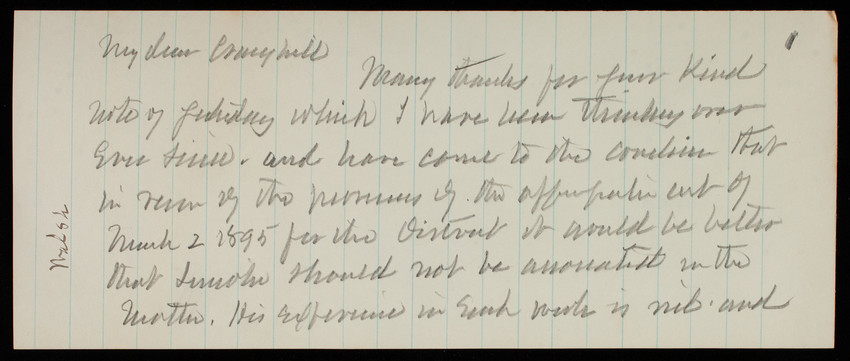 My dear Craighill
Many thanks for your kind
note of yesterday which I have been thinking over
ever since. and have come to the conclusion that
in view of the provisions of the appropriation act of
March 2 1895 for the District it would be better
that Lincoln should not be associated in the
matter. His experience in such work is nil. and